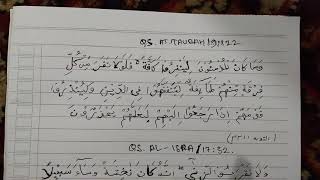 QS. AT-TAUBAH /9:122
وَمَا كَانَ الْمُؤْمِنُوْنَ لِيَنْفِرُوْا كَآفَّةً فَلَوْلَا نَفَرَ مِنْ كُلِّ
فِرْقَةٍ مِنْهُمْ طَآئِفَةٌ لِيَتَفَقَّهُوْا فِى الدِّيْنِ وَلِيُنْذِرُوْا
قَوْمَهُمْ اِذَا رَجَعُوْا اِلَيْهِمْ لَعَلَّهُمْ يَحْذَرُوْنَ
QS. AL-ISRA /17:32.
وَلَا تَقْرَبُوا الزِّنٰى اِنَّهُ كَانَ فَاحِشَةً وَسَآءَ سَبِيْلًا